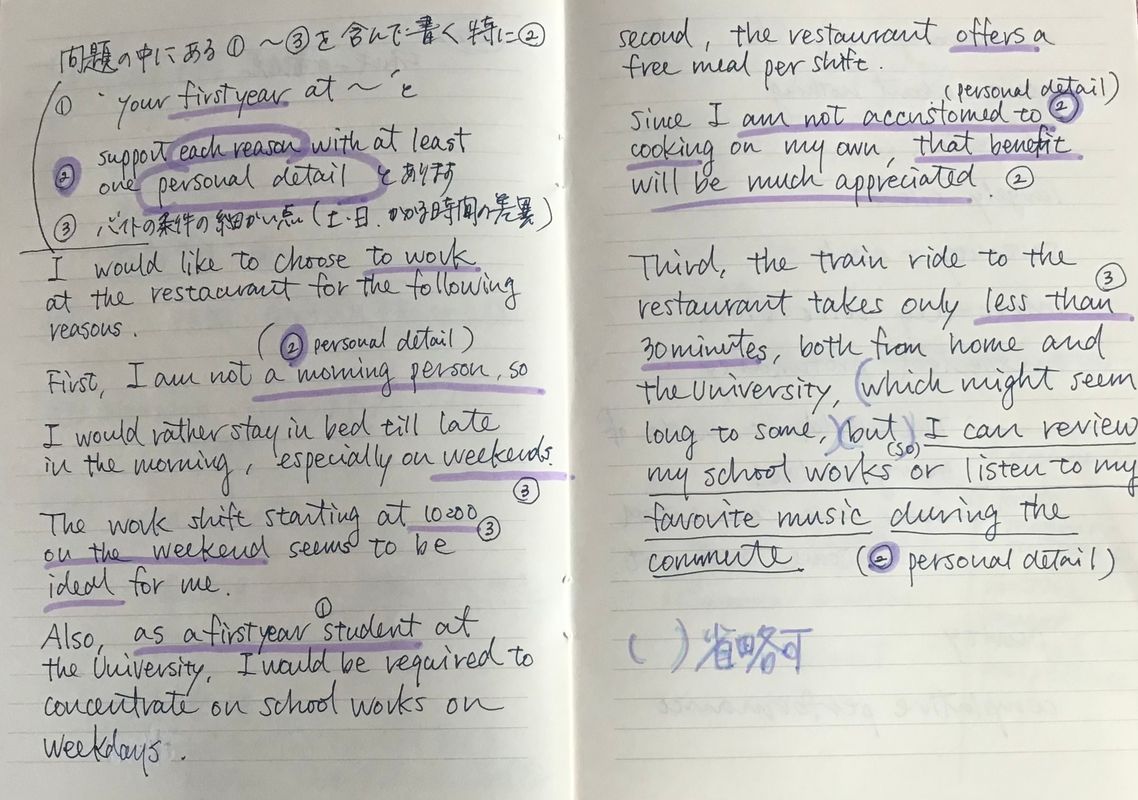 問題の中にある①〜③を含んで書く特に②
① "your first year at 〜"と
② support each reason with at least
one personal detail とあります
③ バイトの条件の細かい点(土・日.かかる時間の差異)
I would like to choose to work
at the restaurant for the following
reasons.
(② personal detail)
First, I am not a morning person, so
I would rather stay in bed till late
in the morning, especially on weekends.
③
The work shift starting at 10:00 ③
on the weekend seems to be
ideal for me.
①
Also, as a first year student at
the University, I would be required to
concentrate on school works on
weekdays.
second, the restaurant offers a
free meal per shift.
(personal detail)
since I am not accustomed to ②
cooking on my own, that benefit
will be much appreciated. ②
Third, the train ride to the
③
restaurant takes only less than
30 minutes, both from home and
the University, (which might seem
long to some,) (but) I can review
(so)
my school works or listen to my
favorite music during the
commute. (② personal detail)
( ) 省略可